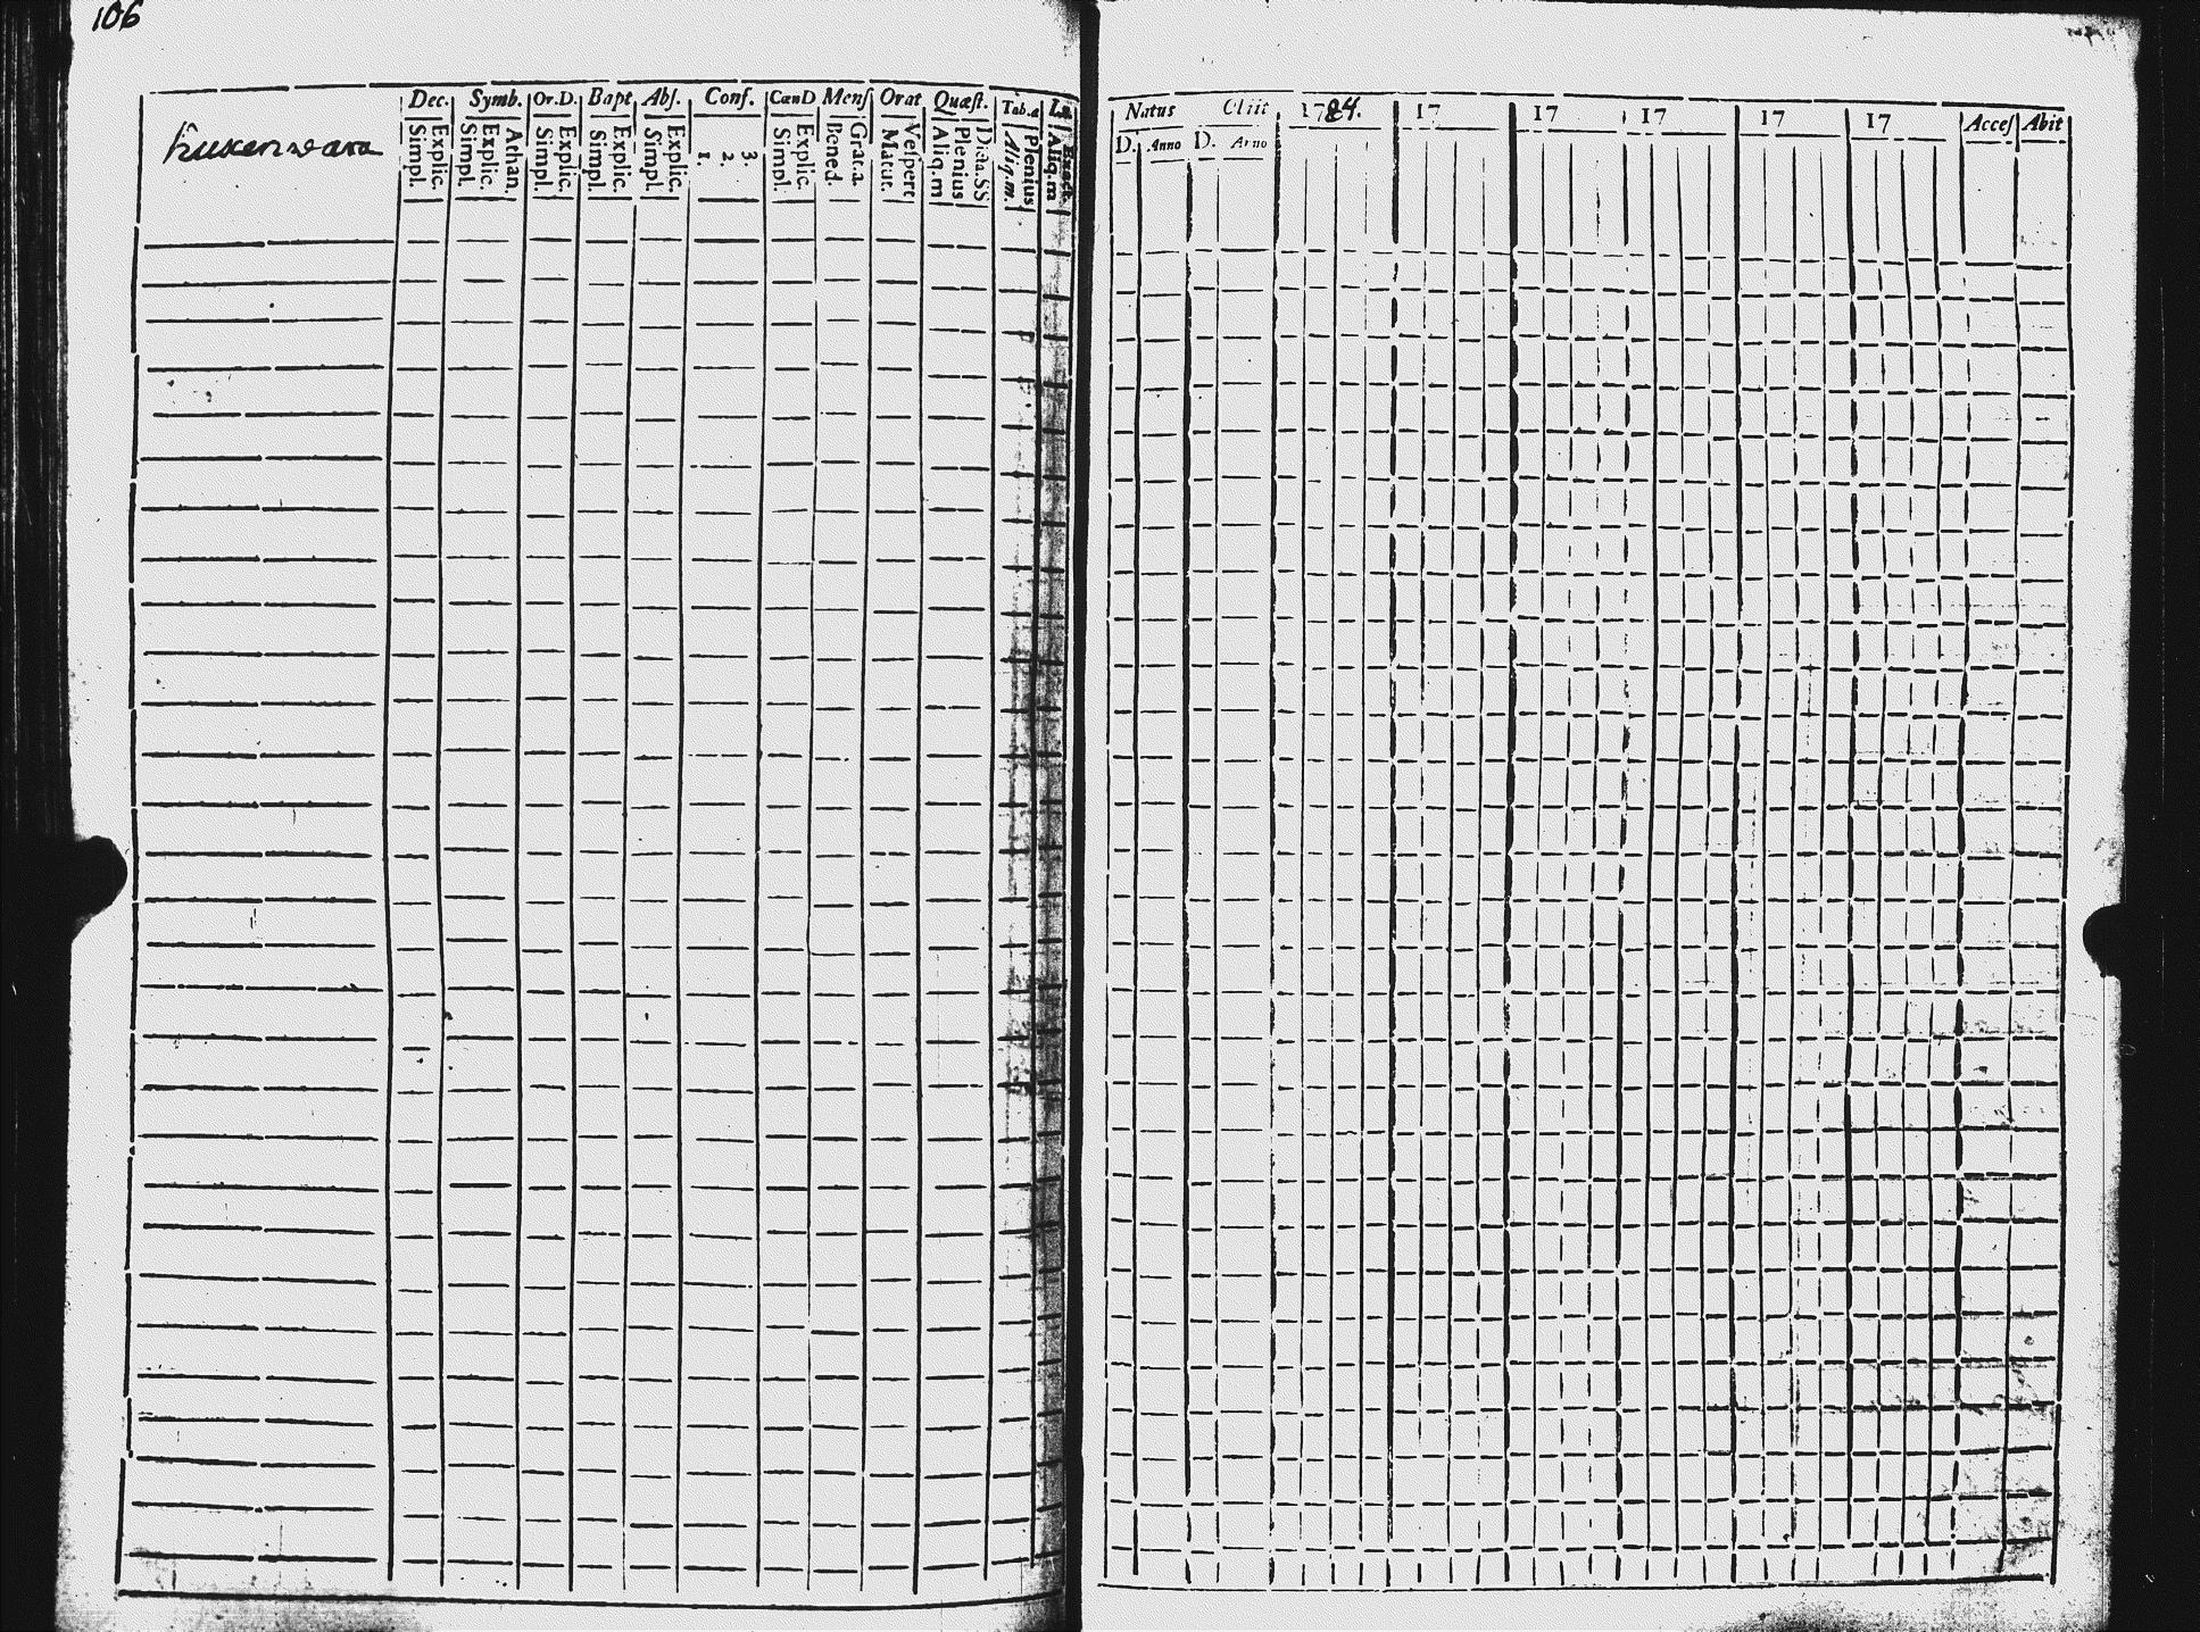 106
Dec. Symb. Or.D. Bapt Abſ. Conf. CœnD Menſ Orat Quæſt. Tab.
Simpl. Explic. Simpl. Explic. Athan. Simpl. Explic. Simpl. Explic. Simpl. Explic. 1. 2. 3. Simpl. Explic. Bened. Grat.a. Matut. Veſpert Aliq.m Plenius Dicta.SS Aliq.m. Plenius Aliq.m Exact.
Natus 1784. 17 17 17 17 17 Acceſ Abit
D. Anno D. Anno